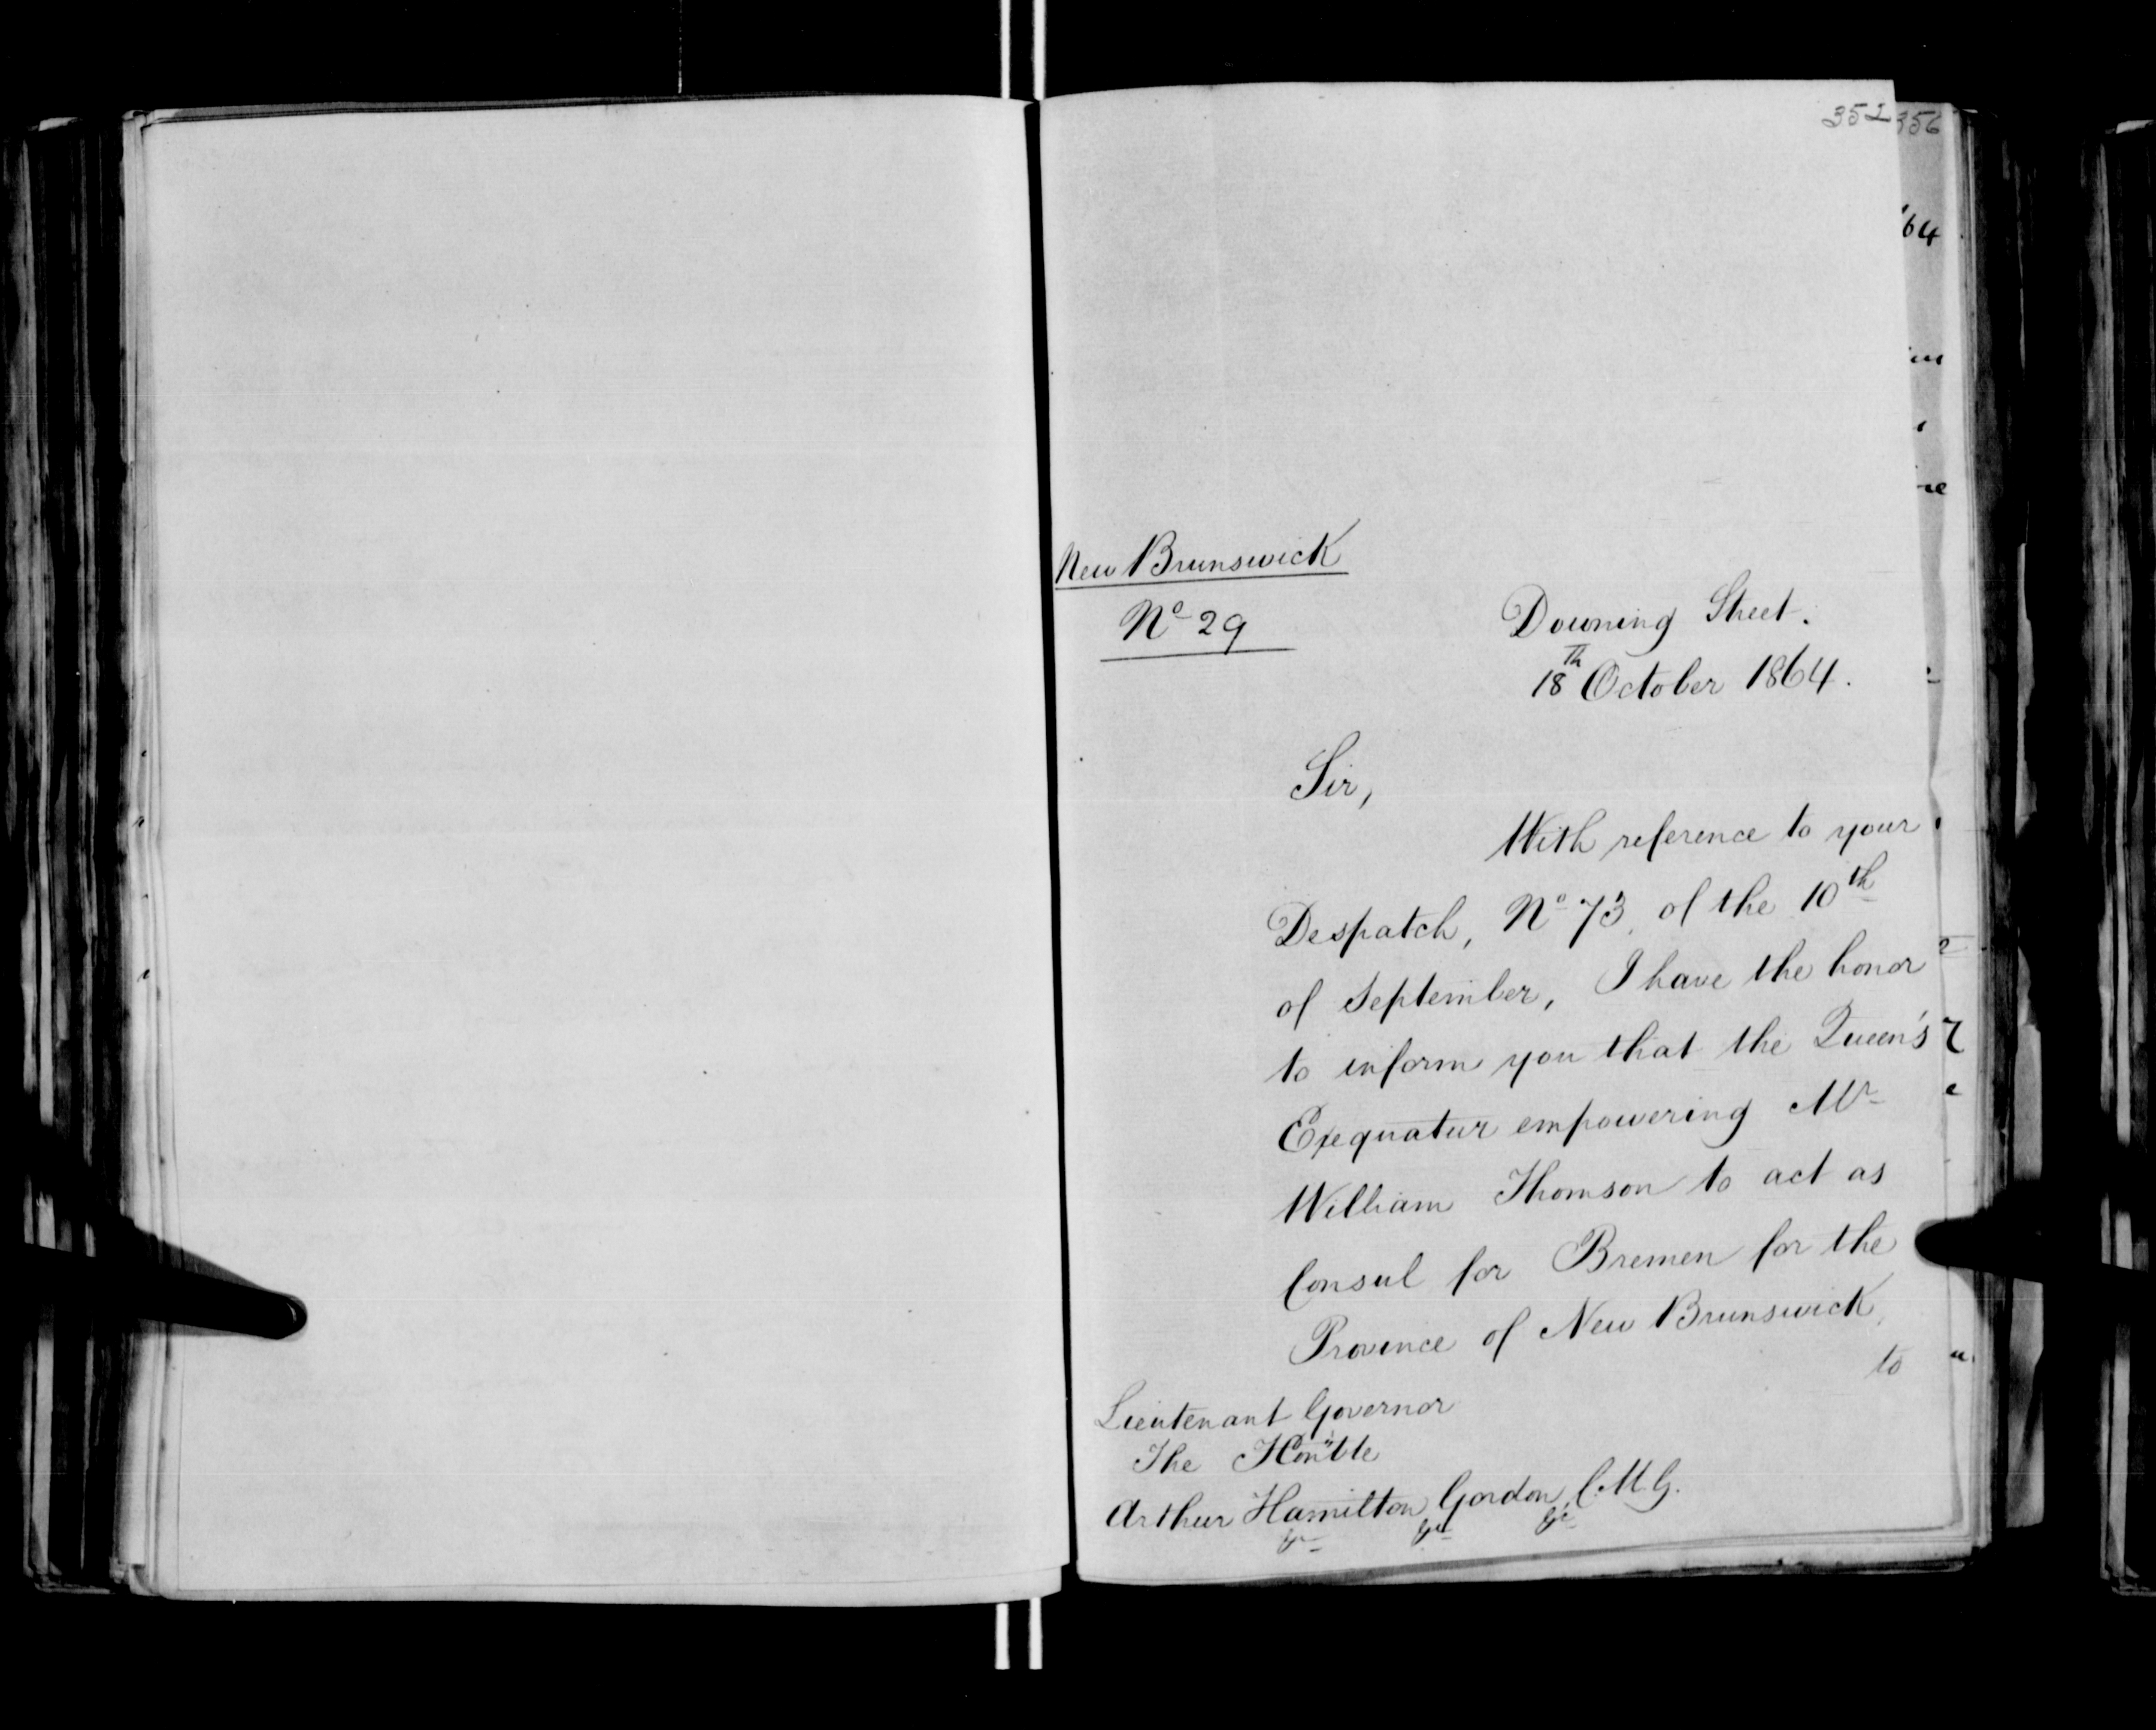 352
356
64
New Brunswick
Nº 29
Downing Street.
18th October 1864.
Sir,
With reference to your
Despatch, Nº 73, of the 10th
of September, I have the honor
to inform you that the Queen's
Exequatur empowering Mr
William Thomson to act as
Consul for Bremen for the
Province of New Brunswick,
to
Lieutenant Governor
The Honble
Arthur Hamilton Gordon, C.M.G.
&c &c &c